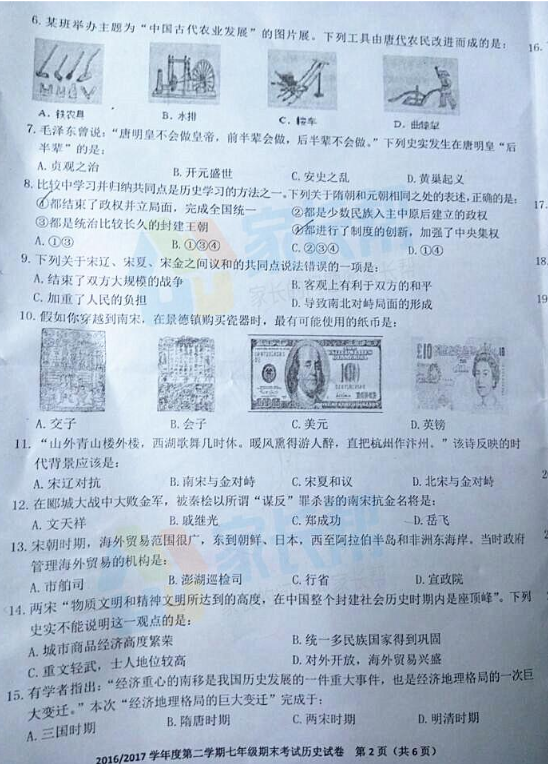 6. 某班举办主题为“中国古代农业发展”的图片展。下列工具由唐代农民改进而成的是:
16.
A、铁农具 B、水排 C、耧车 D、曲辕犁
7. 毛泽东曾说:“唐明皇不会做皇帝,前半辈会做,后半辈不会做。”下列史实发生在唐明皇“后
半辈”的是:
A. 贞观之治 B. 开元盛世 C. 安史之乱 D. 黄巢起义
8. 比较中学习并归纳共同点是历史学习的方法之一。下列关于隋朝和元朝相同之处的表述,正确的是:
17.
①都结束了政权并立局面,完成全国统一 ②都是少数民族入主中原后建立的政权
③都是统治比较长久的封建王朝 ④都进行了制度的创新,加强了中央集权
A. ①③ B. ①③④ C. ②③④ D. ①④
9. 下列关于宋辽、宋夏、宋金之间议和的共同点说法错误的一项是:
18.
A. 结束了双方大规模的战争 B. 客观上有利于双方的和平
C. 加重了人民的负担 D. 导致南北对峙局面的形成
19
10. 假如你穿越到南宋,在景德镇购买瓷器时,最有可能使用的纸币是:
100
£10
A. 交子 B. 会子 C. 美元 D. 英镑
11. “山外青山楼外楼,西湖歌舞几时休。暖风熏得游人醉,直把杭州作汴州。”该诗反映的时
代背景应该是:
A. 宋辽对抗 B. 南宋与金对峙 C. 宋夏和议 D. 北宋与金对峙
12. 在郾城大战中大败金军,被秦桧以所谓“谋反”罪杀害的南宋抗金名将是:
A. 文天祥 B. 戚继光 C. 郑成功 D. 岳飞
13. 宋朝时期,海外贸易范围很广,东到朝鲜、日本,西至阿拉伯半岛和非洲东海岸。当时政府
管理海外贸易的机构是:
A. 市舶司 B. 澎湖巡检司 C. 行省 D. 宣政院
14. 两宋“物质文明和精神文明所达到的高度,在中国整个封建社会历史时期内是座顶峰”。下列
史实不能说明这一观点的是:
A. 城市商品经济高度繁荣 B. 统一多民族国家得到巩固
C. 重文轻武,士人地位较高 D. 对外开放,海外贸易兴盛
15. 有学者指出:“经济重心的南移是我国历史发展的一件重大事件,也是经济地理格局的一次巨
大变迁。”本次“经济地理格局的巨大变迁”完成于:
A. 三国时期 B. 隋唐时期 C. 两宋时期 D. 明清时期
2016/2017 学年度第二学期七年级期末考试历史试卷 第 2 页(共 6 页)